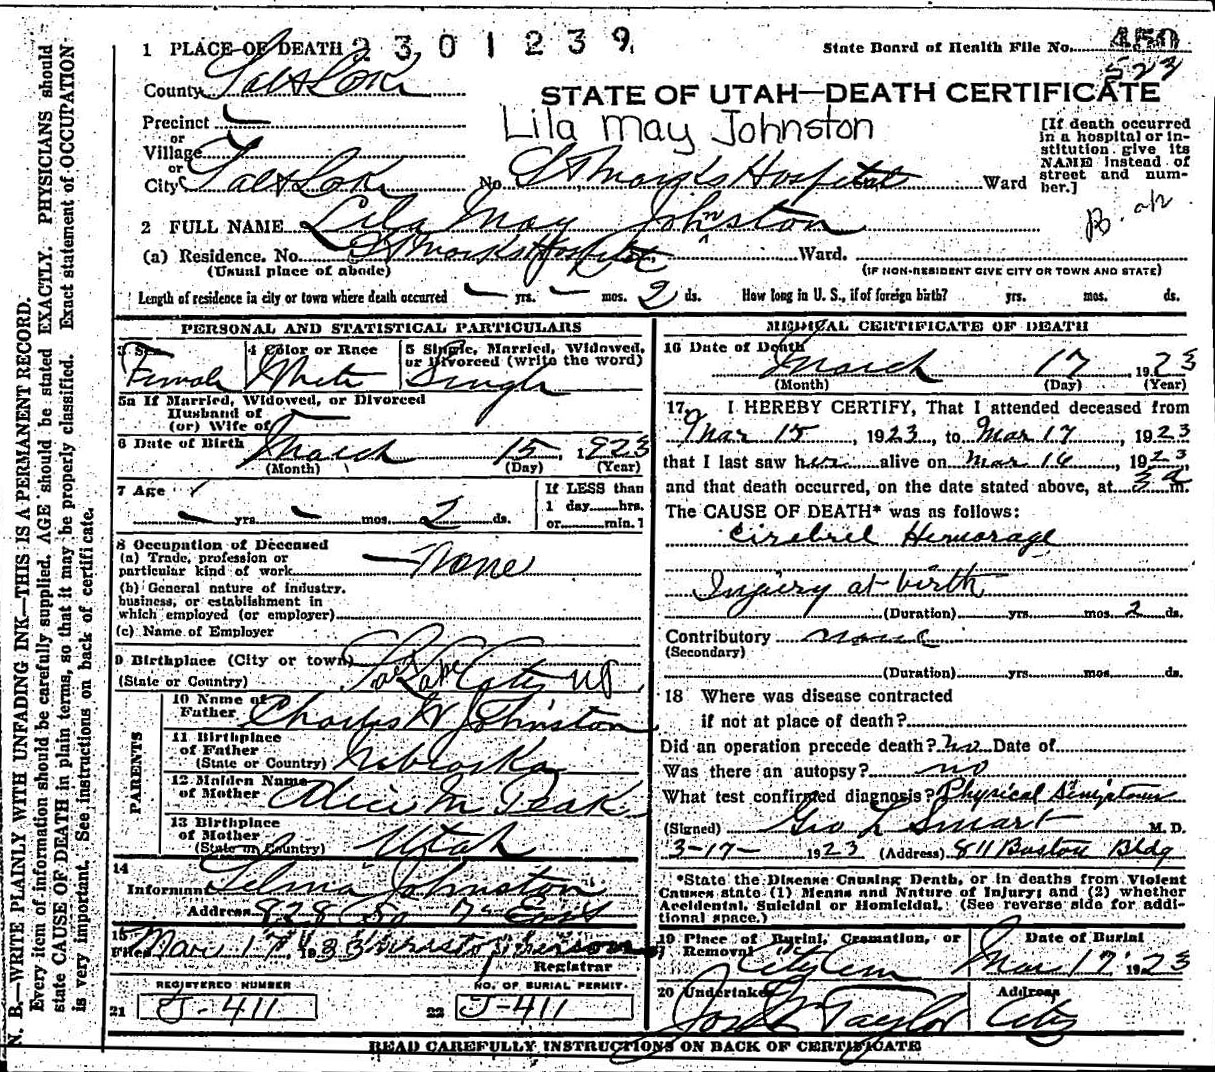 1 PLACE OF DEATH 2301239 State Board of Health File No. 450
523
County Salt Lake
STATE OF UTAH—DEATH CERTIFICATE
Precinct
or
Village
or
City Salt Lake No. St Mark's Hospital Ward
Lila May Johnston
[If death occurred in a hospital or institution give its NAME instead of street and number.]
2 FULL NAME Lila May Johnston
(a) Residence. No. St Marks Hospital Ward.
(Usual place of abode) (IF NON-RESIDENT GIVE CITY OR TOWN AND STATE)
Length of residence in city or town where death occurred — yrs. — mos. 2 ds. How long in U. S., if of foreign birth? yrs. mos. ds.
PERSONAL AND STATISTICAL PARTICULARS
3 Sex Female
4 Color or Race White
5 Single, Married, Widowed, or Divorced (write the word) Single
5a If Married, Widowed, or Divorced
Husband of
(or) Wife of
6 Date of Birth March 15, 1923
(Month) (Day) (Year)
7 Age — yrs. — mos. 2 ds.
If LESS than
1 day hrs.
or min.
8 Occupation of Deceased
(a) Trade, profession or
particular kind of work None
(b) General nature of industry.
business, or establishment in
which employed (or employer)
(c) Name of Employer
9 Birthplace (City or town) Salt Lake City
(State or Country)
PARENTS
10 Name of Father Charles W Johnston
11 Birthplace of Father
(State or Country) Nebraska
12 Maiden Name of Mother Alice M Peak
13 Birthplace of Mother
(State or Country) Utah
14
Informant Selma Johnston
Address 828 So 7th East
15
Filed Mar 17
Registrar
REGISTERED NUMBER
21 J-411
NO. OF BURIAL PERMIT.
22 J-411
MEDICAL CERTIFICATE OF DEATH
16 Date of Death March 17 1923
(Month) (Day) (Year)
17 I HEREBY CERTIFY, That I attended deceased from
Mar 15, 1923, to Mar 17, 1923
that I last saw her alive on Mar 16, 1923
and that death occurred, on the date stated above, at 3 a m.
The CAUSE OF DEATH* was as follows:
Cirebril Hemorage
Injury at birth
(Duration) yrs. mos. 2 ds.
Contributory none
(Secondary)
(Duration) yrs. mos. ds.
18 Where was disease contracted
if not at place of death?
Did an operation precede death? no Date of
Was there an autopsy? no
What test confirmed diagnosis? Physical Simptoms
(Signed) Geo L Smart M. D.
3-17- 1923 (Address) 811 Boston Bldg
*State the Disease Causing Death, or in deaths from Violent
Causes state (1) Means and Nature of Injury; and (2) whether
Accidental, Suicidal or Homicidal. (See reverse side for addi-
tional space.)
19 Place of Burial, Cremation, or
Removal City Cem
Date of Burial
Mar 17 1923
20 Undertaker Taylor
Address
City
READ CAREFULLY INSTRUCTIONS ON BACK OF CERTIFICATE
N. B.—WRITE PLAINLY WITH UNFADING INK—THIS IS A PERMANENT RECORD.
Every item of information should be carefully supplied. AGE should be stated EXACTLY. PHYSICIANS should
state CAUSE OF DEATH in plain terms, so that it may be properly classified. Exact statement of OCCUPATION
is very important. See instructions on back of certificate.